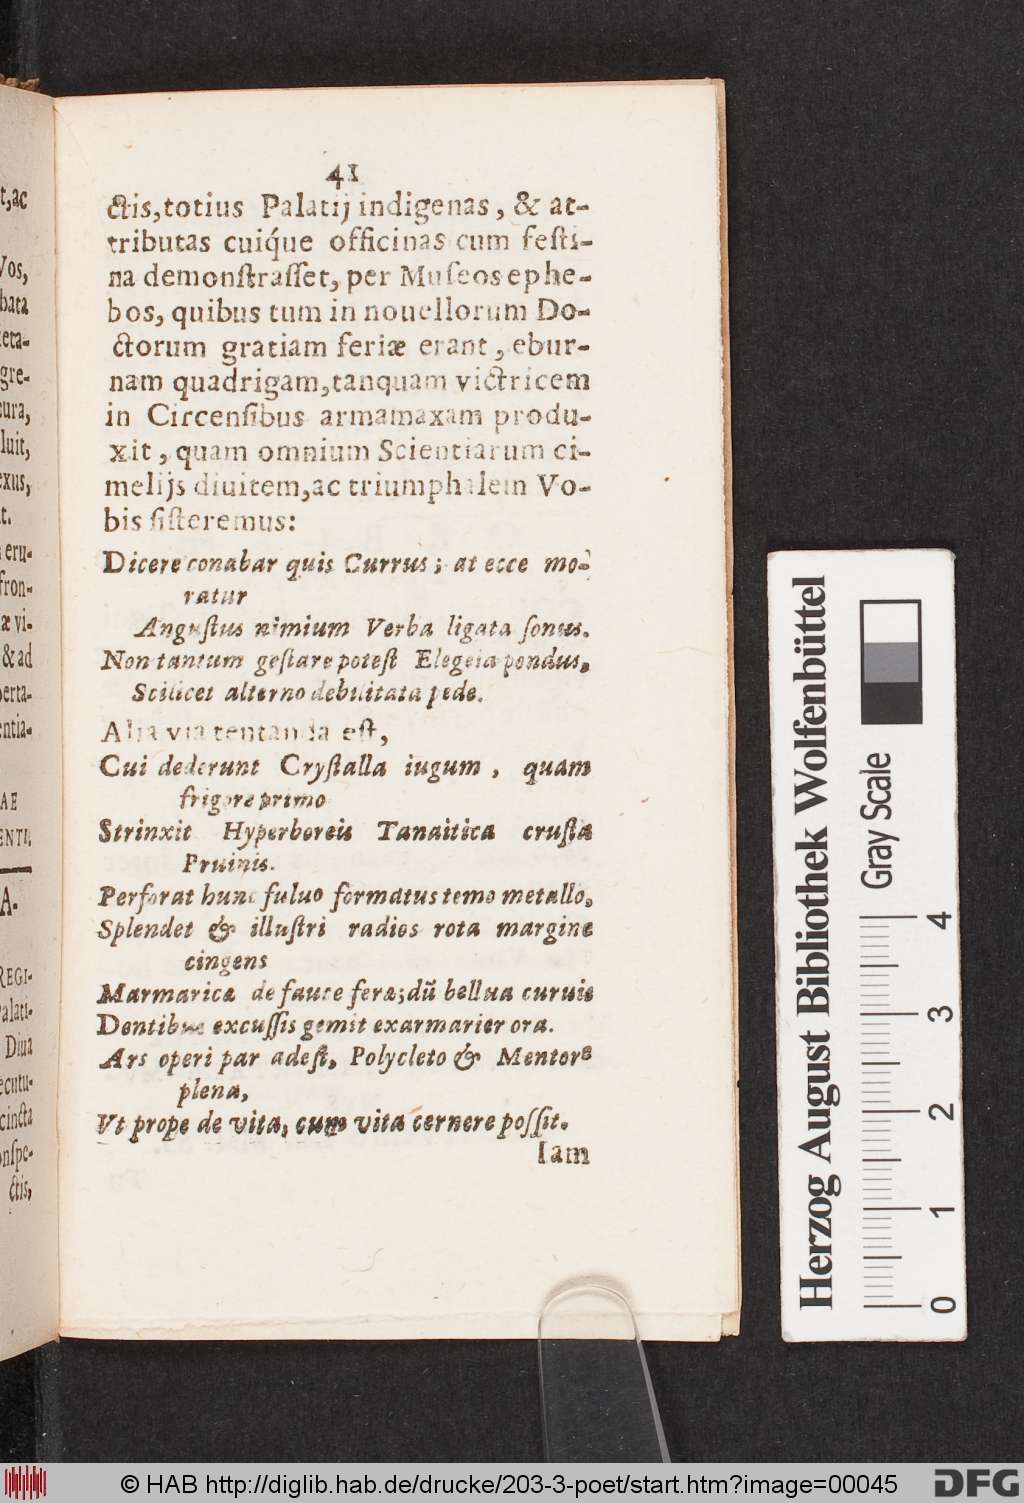 t,ac
Vos,
bata
ieta-
gre-
cura,
luit,
exus,
t.
eru-
fron-
æ vi-
& ad
perta-
entia-
AE
ENTI,
A.
REGI-
Palati-
Diua
ecutu-
cincta
onſpe-
ctis,
41
ctis, totius Palatij indigenas, & at-
tributas cuiq́ue officinas cum feſti-
na demonſtraſſet, per Muſeos ephe-
bos, quibus tum in nouellorum Do-
ctorum gratiam feriæ erant, ebur-
nam quadrigam, tanquam victricem
in Circenſibus armamaxam produ-
xit, quam omnium Scientiarum ci-
melijs diuitem, ac triumphalem Vo-
bis ſiſteremus:
Dicere conabar quis Currus; at ecce mo-
ratur
Anguſtus nimium Verba ligata ſonus.
Non tantum geſtare poteſt Elegeia pondus,
Scilicet alterno debilitata pede.
Alia via tentanda eſt,
Cui dederunt Cryſtalla iugum, quam
frigore primo
Strinxit Hyperboreis Tanaitica cruſta
Pruinis.
Perforat hunc fuluo formatus temo metallo,
Splendet & illuſtri radios rota margine
cingens
Marmarica de fauce fera; dū bellua curuis
Dentibus excuſſis gemit exarmarier ora.
Ars operi par adeſt, Polycleto & Mentore
plena,
Vt prope de vita, cum vita cernere poſſit.
Iam
Herzog August Bibliothek Wolfenbüttel
Gray Scale
0 1 2 3 4
© HAB http://diglib.hab.de/drucke/203-3-poet/start.htm?image=00045
DFG